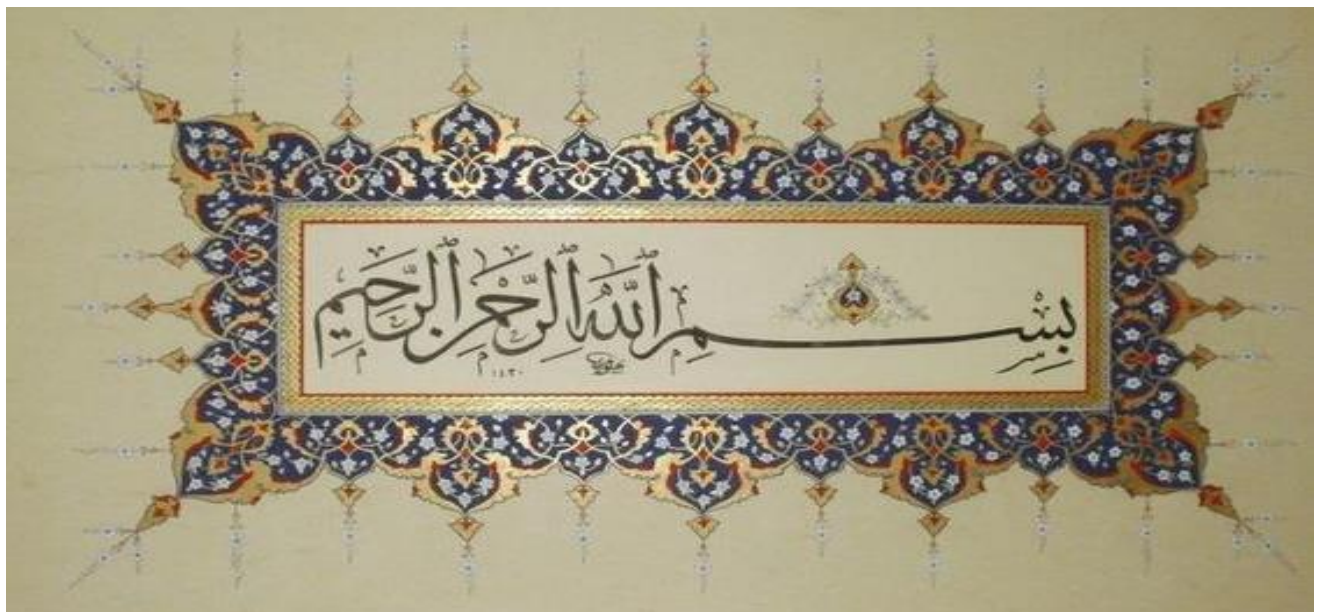 بِسْمِ ٱللَّهِ ٱلرَّحْمٰنِ ٱلرَّحِيمِ
١٤٣٠